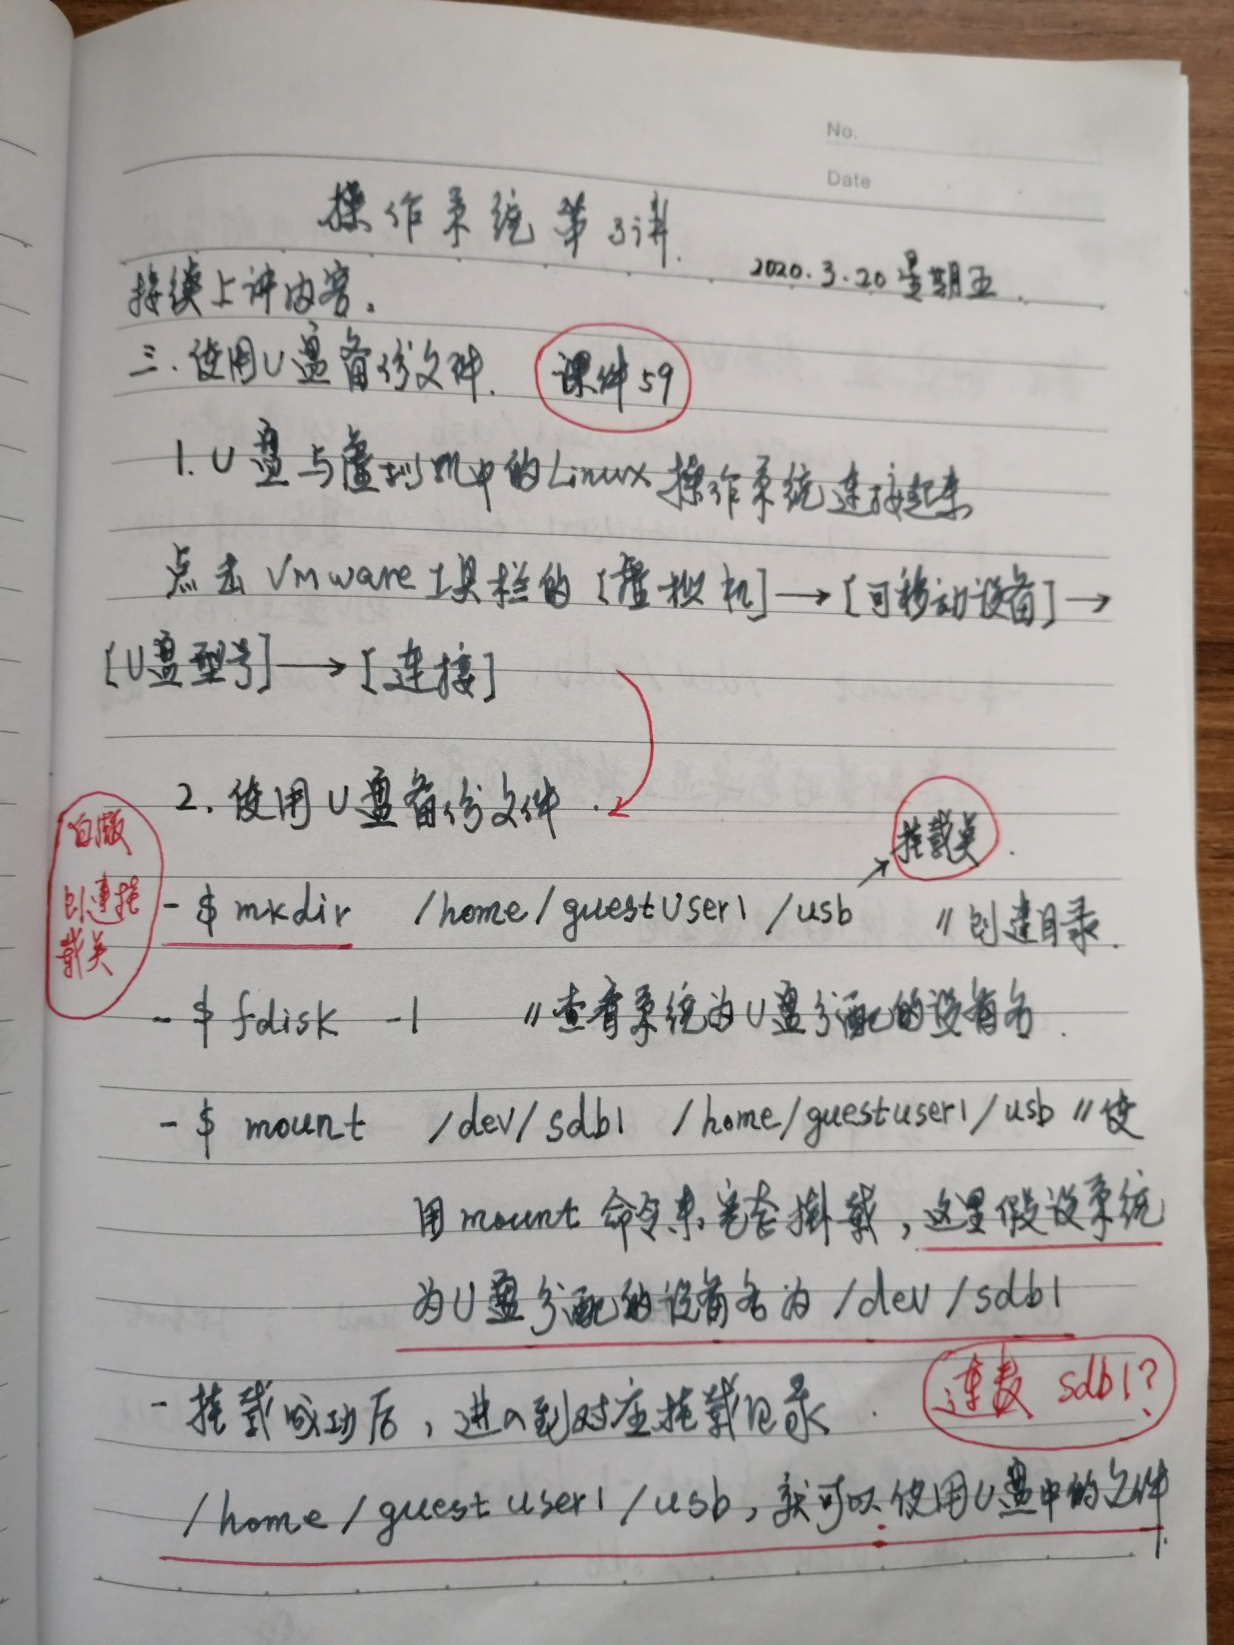 No.
Date
操作系统第3讲
2020.3.20 星期五.
接续上讲内容。
三.使用U盘备份文件. 课件59
1.U盘与虚拟机中的Linux操作系统连接起来
点击Vmware工具栏的[虚拟机]→[可移动设备]→
[U盘型号]→[连接]
2.使用U盘备份文件.
挂载点.
创建挂
载点
-$ mkdir /home/guestUser1/usb //创建目录.
-$ fdisk -l //查看系统为U盘分配的设备名.
-$ mount /dev/sdb1 /home/guestuser1/usb //使
用mount命令来完态掛载,这里假设系统
为U盘分配的设备名为/dev/sdb1
-挂载成功后,进入到对应挂载目录.
sdb1?
/home/guestuser1/usb,就可以使用U盘中的文件.